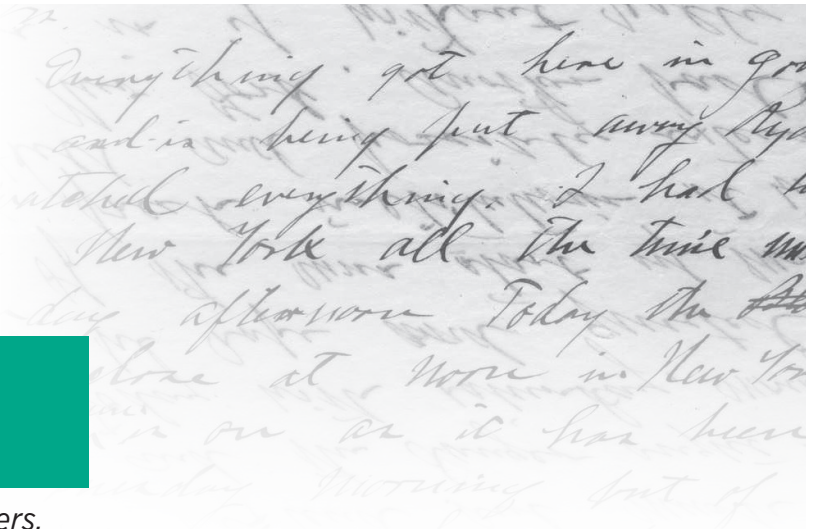 Everything got here in
and is being put away
everything. I had
New York all the time
day afternoon Today the
close at noon in New
is on as it has been
morning but of
ers.